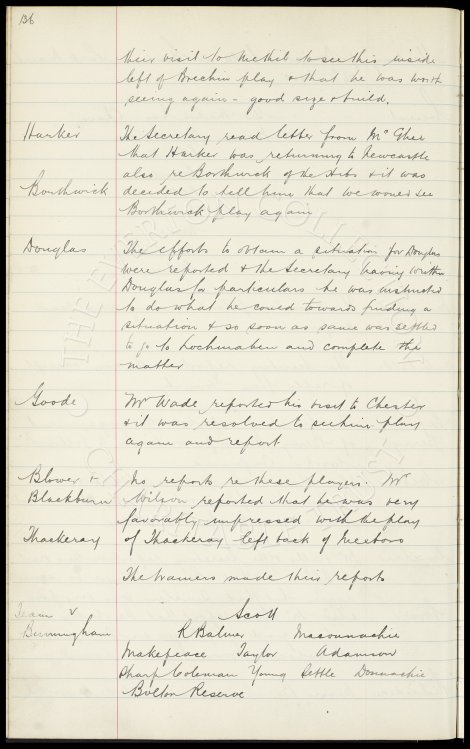 136
their visit to Methil to see this inside
left of Brechin play & that he was worth
seeing again - good size & build.
Harker The Secretary read letter from Mr Ghee
that Harker was returning to Newcastle
also re Borthwick of the Hibs & it was
Borthwick decided to tell him that we would see
Borthwick play again
Douglas The efforts to obtain a situation for Douglas
were reported & the Secretary having written
Douglas for particulars he was instructed
to do what he could towards finding a
situation & so soon as same was settled
to go to Lochmaben and complete the
matter
Goode Mr Wade reported his visit to Chester
& it was resolved to see him play
again and report
Blower & No reports re these players. Mr
Blackburn Wilson reported that he was very
favorably impressed with the play
Thackeray of Thackeray left back of Mexboro
The trainers made their reports
Team v Scott
Birmingham R Balmer Maconnachie
Makepeace Taylor Adamson
Sharp Coleman Young Settle Donnachie
Bolton Reserve
THE EVERTON COLLECTION